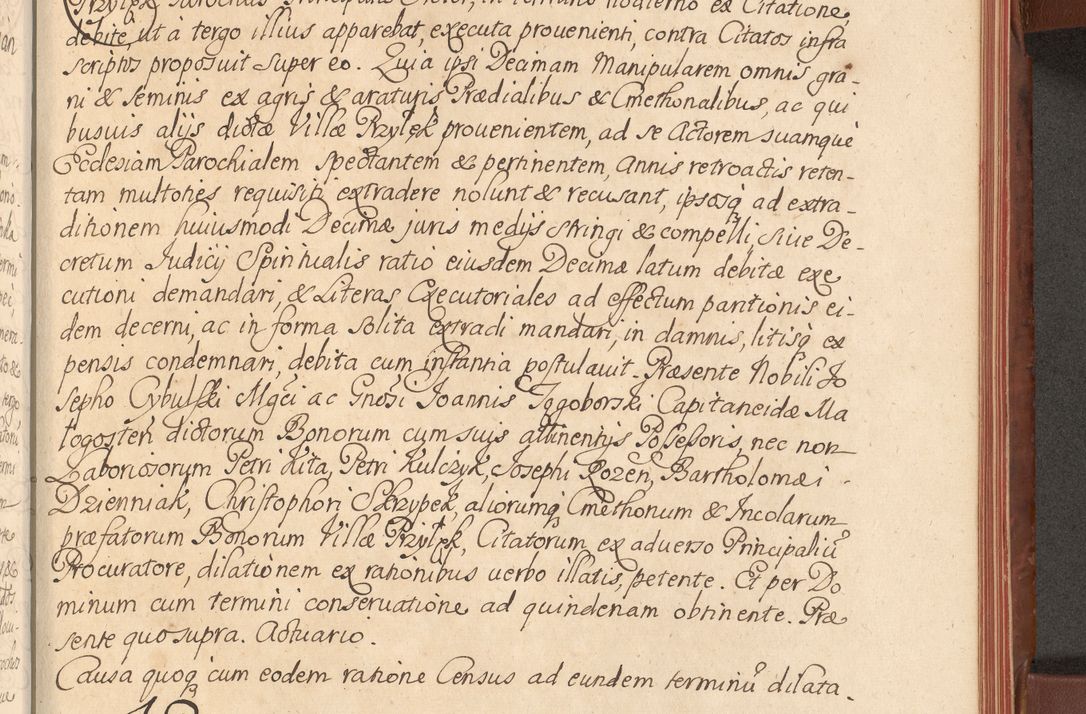 Przylęk Parochus Principalis Actor, in termino hodierno ex Citatione,
debite, ut à tergo illius apparebat, executa prouenienti, contra Citatos infra
scriptos proposuit super eo. Quia ipsi Decimam Manipularem omnis gra-
ni & seminis ex agris & araturis Prædialibus & Cmethonalibus, ac qui
busuis alijs dictæ Villæ Przylęk prouenientem, ad se Actorem suamque
Ecclesiam Parochialem spectantem & pertinentem, annis retroactis reten-
tam multoties requisiti extradere nolunt & recusant, ipsosq ad extra-
ditionem huiusmodi Decimæ juris medijs stringi & compelli, siue De-
cretum Judicij Spiritualis ratio eiusdem Decimæ latum debitæ exe
cutioni demandari, & Literas Executoriales ad effectum paritionis ei-
dem decerni, ac in forma solita extradi mandari, in damnis, litisq ex
pensis condemnari, debita cum instantia postulauit. Præsente Nobili Jo
sepho Cybulski Mgci ac Gnosi Joannis Jogoborski Capitaneidæ Ma
logosten dictorum Bonorum cum suis attinentijs Possessoris, nec non
Laboriosorum Petri Kita, Petri Kulczyk, Josephi Rozen, Bartholomæi
Dzienniak, Christophori Skrzypek, aliorumq Cmethonum & Incolarum
præfatorum Bonorum Villæ Przylęk, Citatorum ex aduerso Principaliũ
Procuratore, dilationem ex rationibus verbo illatis, petente. Et per Do
minum cum termini conseruatione ad quindenam obtinente. Præ
sente quo supra. Actuario.
Causa quoq cum eodem ratione Census ad eundem terminũ dilata.